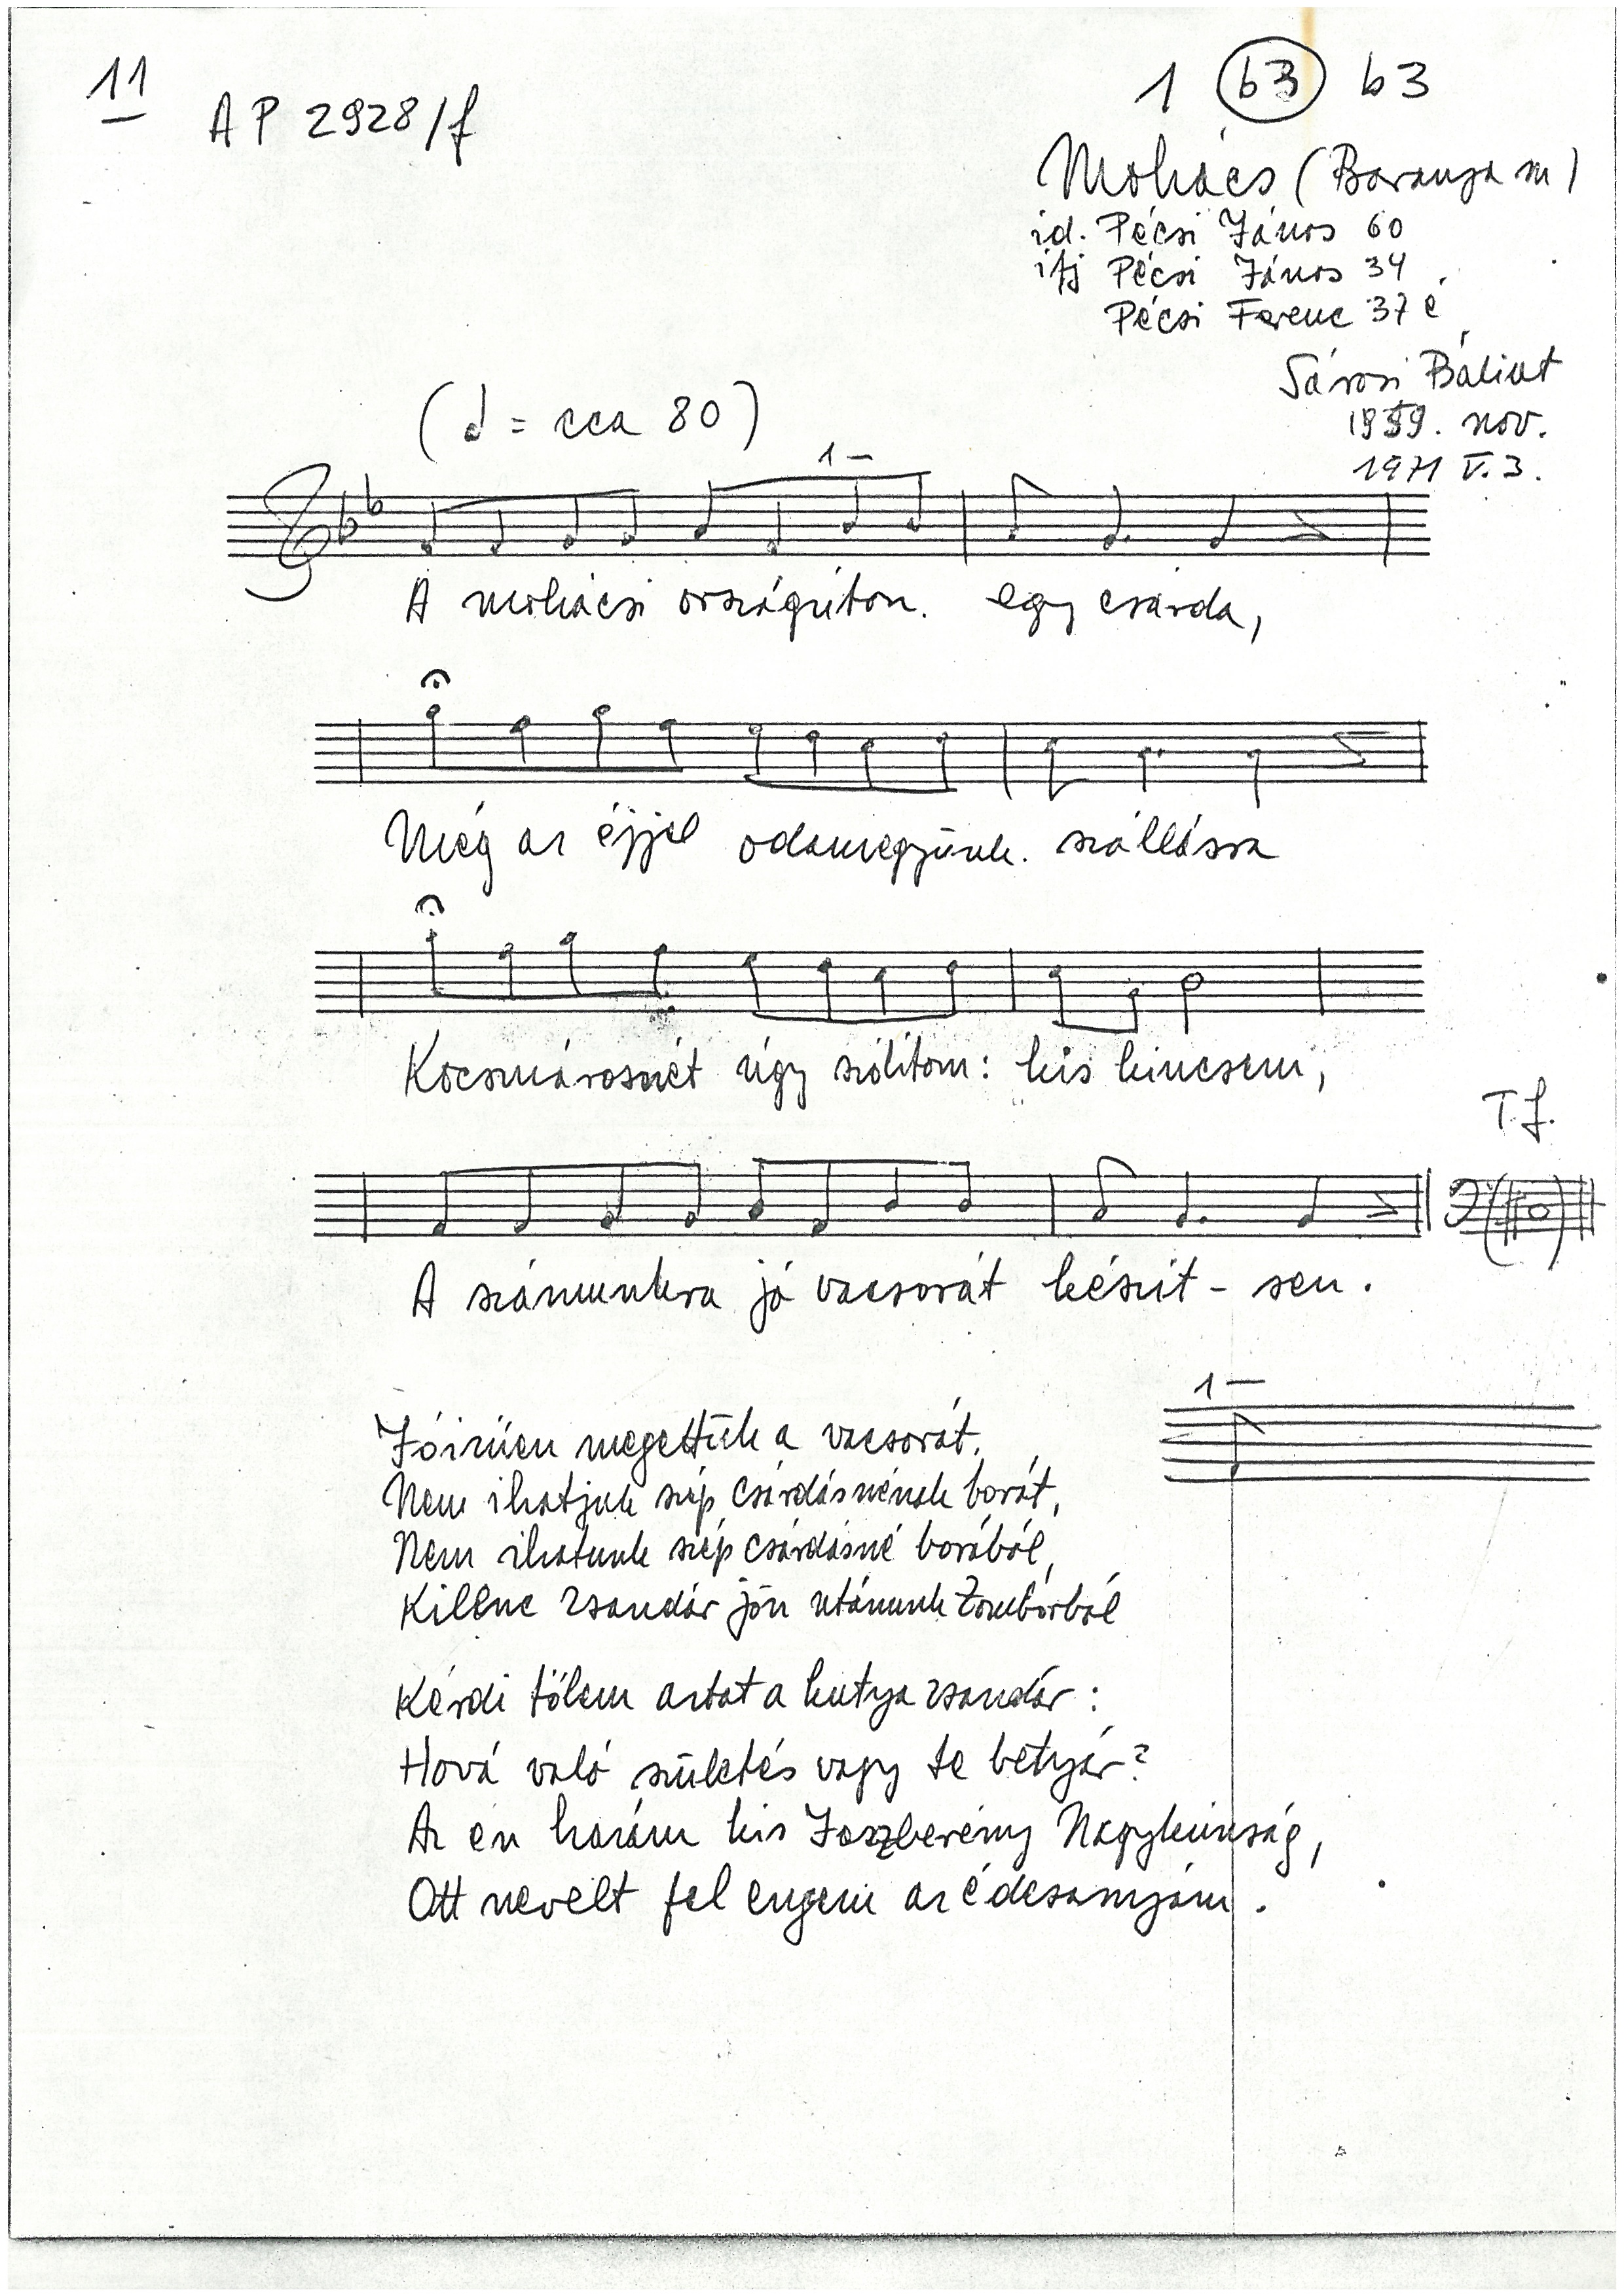 11
AP 2928/f
1 63 63
Mohács (Baranya m)
id. Pécsi János 60
ifj Pécsi János 34
Pécsi Ferenc 37 é
Sárosi Bálint
1959. nov.
1971 V. 3.
( = cca 80)
1
A mohácsi országúton. egy csárda,
Még az éjjel odamegyünk. szállásra
Kocsmárosnét úgy szólítom: kis kincsem,
T.f.
A számunkra jó vacsorát készít - sen.
1
Jóízűen megettük a vacsorát,
Nem ihatjuk szép csárdásnénak borát,
Nem ihatunk szép csárdásné borából,
Kilenc zsandár jön utánunk Zomborból
Kérdi tőlem aztat a kutya zsandár :
Hová való születés vagy te betyár?
Az én hazám kis Jászberény Nagykúnság,
Ott nevelt fel engem az édesanyám .